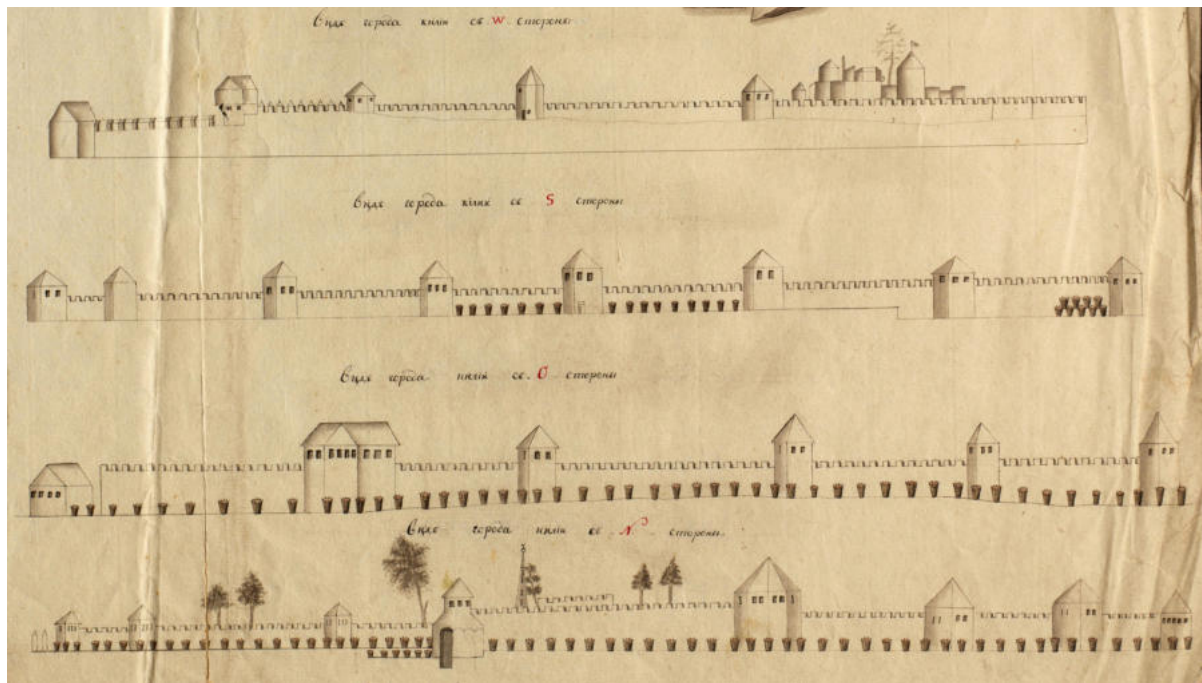 Видъ города килiи съ W стороны
Видъ города килiи съ S стороны
Видъ города килiи съ O стороны
Видъ города килiи съ N стороны